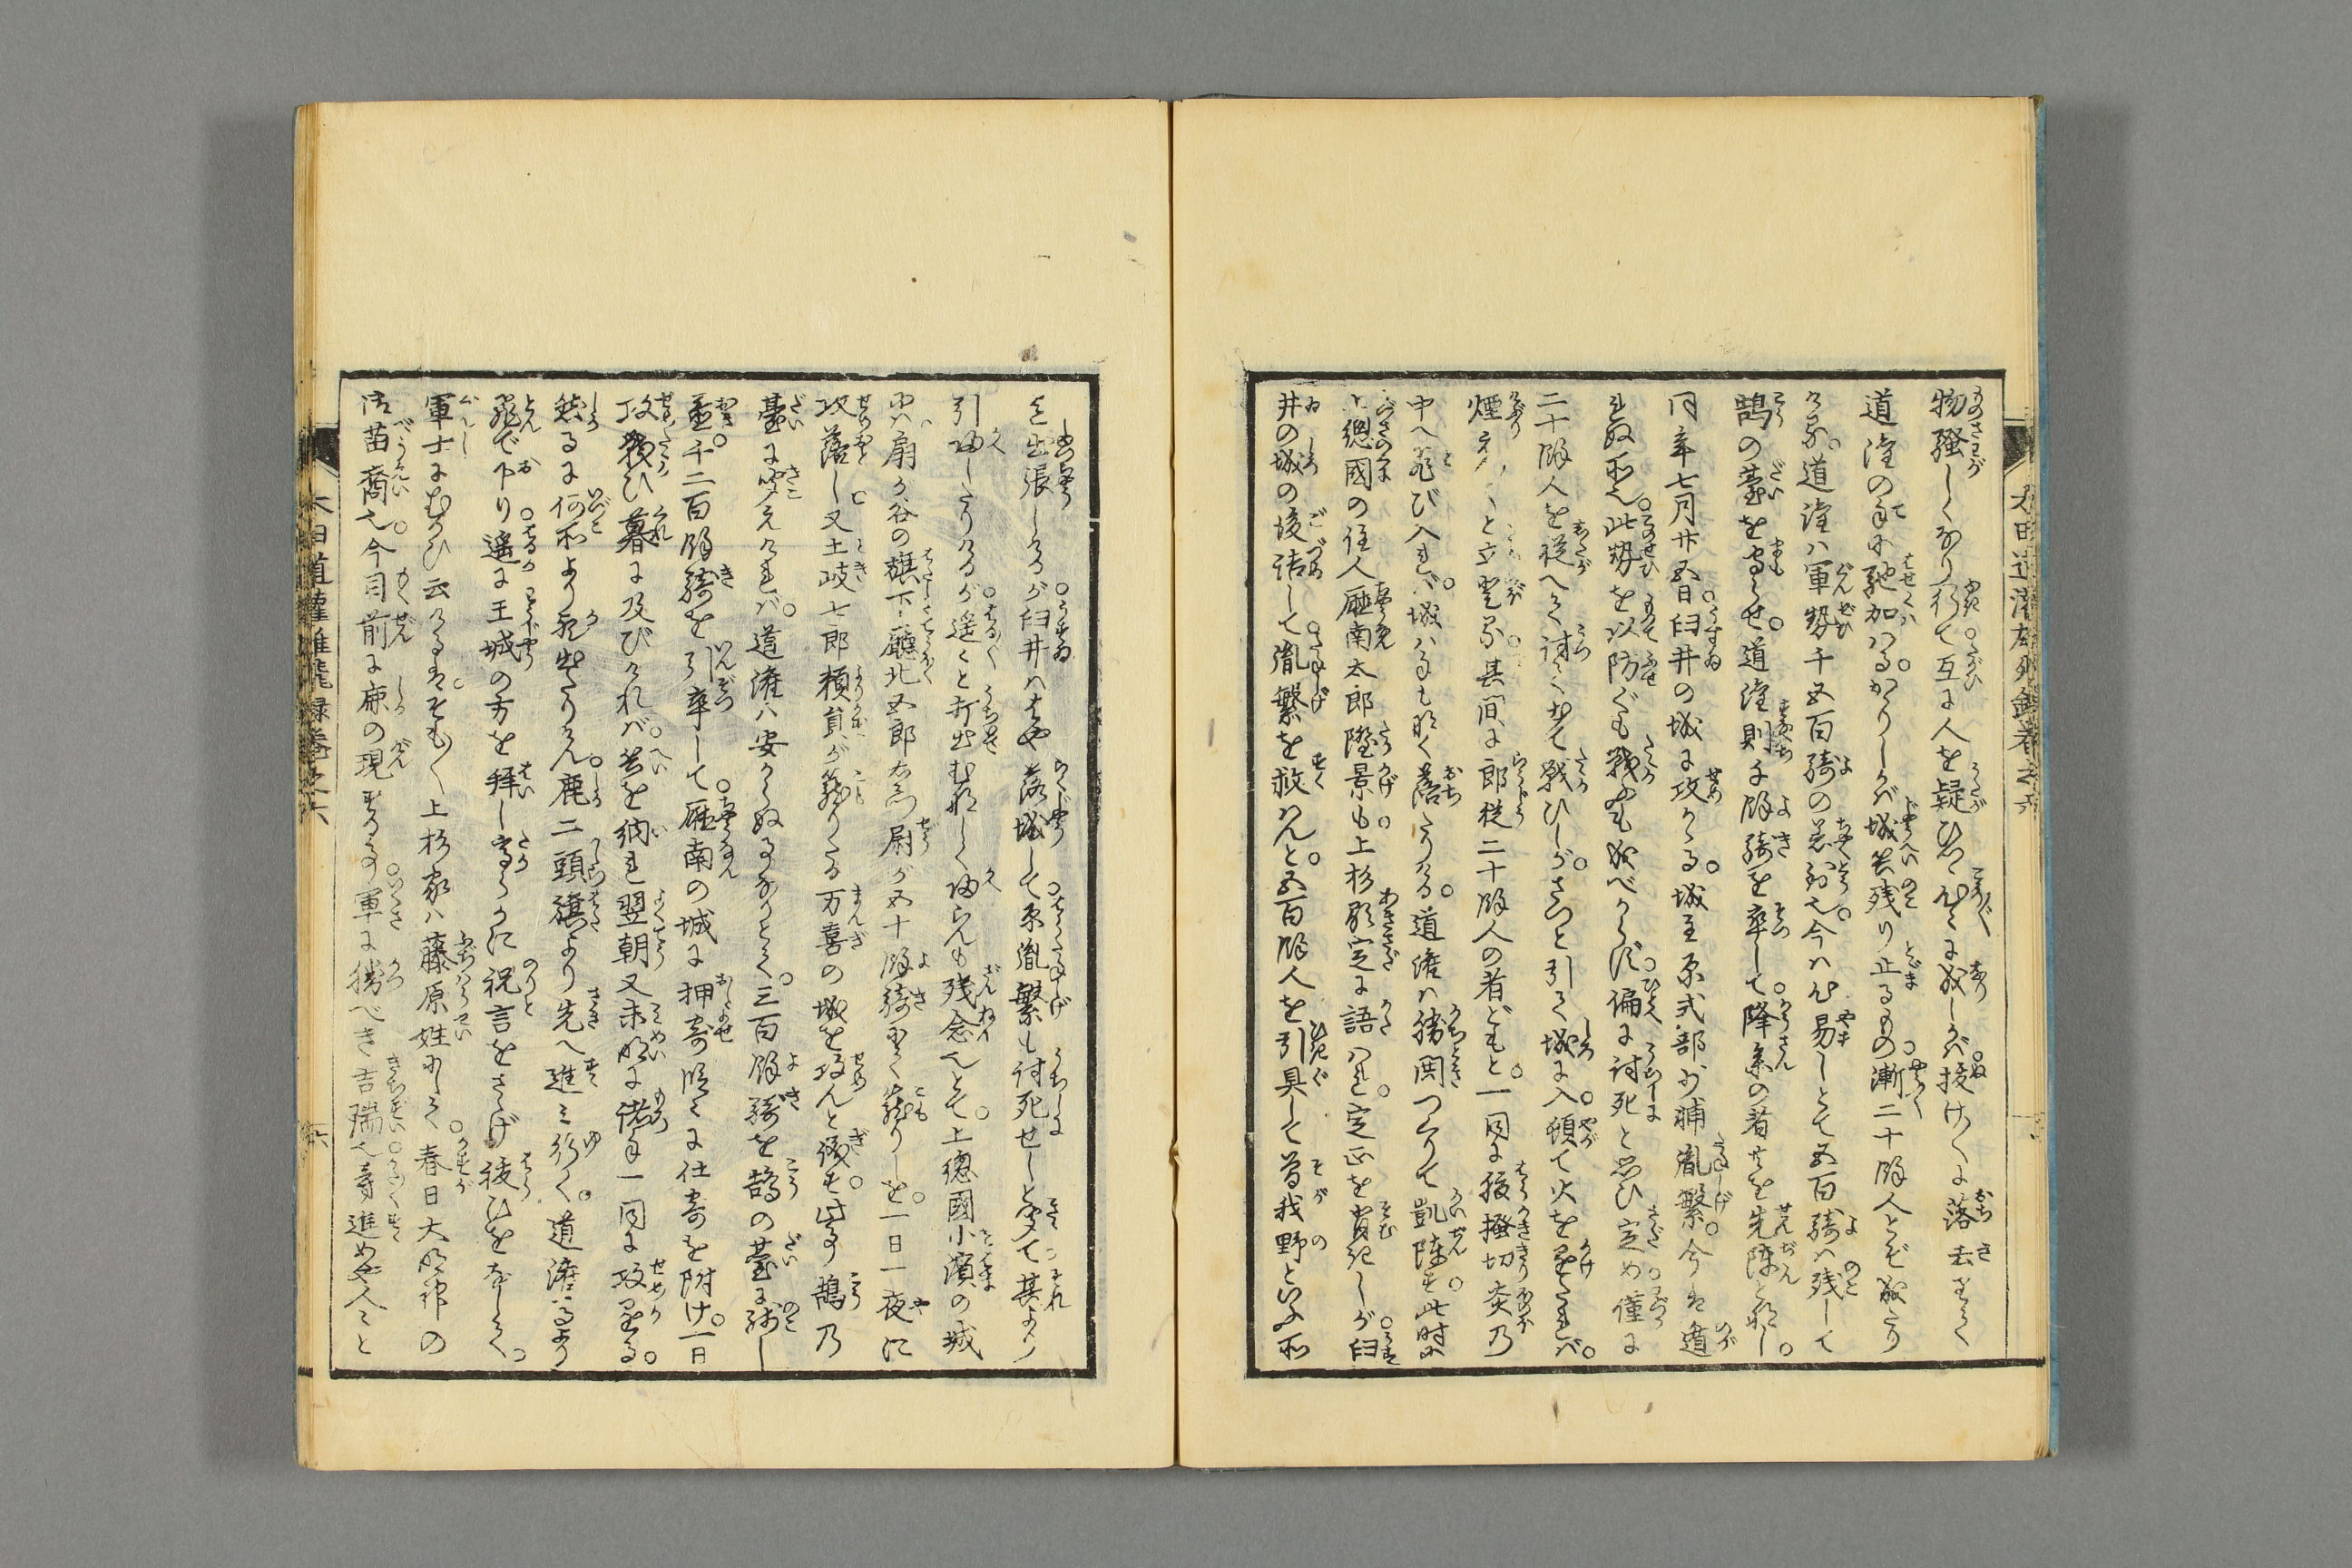 物騒しくなり行て互に人を疑ひ思々心々に成しかバ抜け々々に落去すく
道灌の手に馳加ハる。かゝりしかバ城兵残り止るもの漸二十餘人とぞ成たり
ける。道灌ハ軍勢千五百騎の着到也。今ハ心易しとて五百騎ハ残して
鵠の臺を守らせ。道灌則千餘騎を率して。降参の者共を先陣と成し。
同年七月廿五日。臼井の城に攻かゝる。城主原式部少輔胤繁。今ハ遁
れぬ所也。此勢を以防ぐとも戦ふとも成べからず。偏に討死と思ひ定め。僅に
二十餘人を従へて討て出て戦ひしが。さつと引て城に入。頓て火を懸たれバ。
煙天々と立登る。其間に郎従二十餘人の者どもと。一同に腹掻切炎乃
中へ飛び入れバ。城ハ事も成く落たりける。道灌ハ勝閧つくりて凱陣す。此時に
上總國の住人廰南太郎隆景も。上杉顕定に語ハれ。定正を背しが。臼
井の城の後詰して。胤繁を救ハんと。五百餘人を引具して曽我野といふ所
を出張しけるが。臼井ハはや落城して。原胤繁も討死せしと聞て。其より
引返したりけるが。遥々と打出むなしく返らんも残念也とて。上總國小濱の城
に。扇が谷の旗下。廰北五郎左衛門尉が五十餘騎にて籠りしを。一日一夜に
攻落し。又土岐七郎頼貞が籠りたる万喜の城を攻んと儀す。此事鵠乃
臺に聞えけれバ。道灌ハ安からぬ事なりとて。三百餘騎を鵠の臺に残し
置。千二百餘騎を引率して。廰南の城に押寄。頓て仕寄を附け。一日
攻戦ひ暮に及びけれバ。兵を納れ翌朝又未明に諸手一同に攻懸る。
然るに何所より飛出たりけん。鹿二頭旗より先へ進ミ行く。道灌馬より
飛で下り。遥に王城の方を拝し。高らかに祝言をさゝげ祓ひをなして。
軍士にむかひ云けるは。そも〳〵上杉家ハ藤原姓にして。春日大明神の
御苗裔也。今目前に鹿の現ずる事。軍に勝べき吉瑞也。尋進め人々と
太田道灌雄飛録巻之六
六